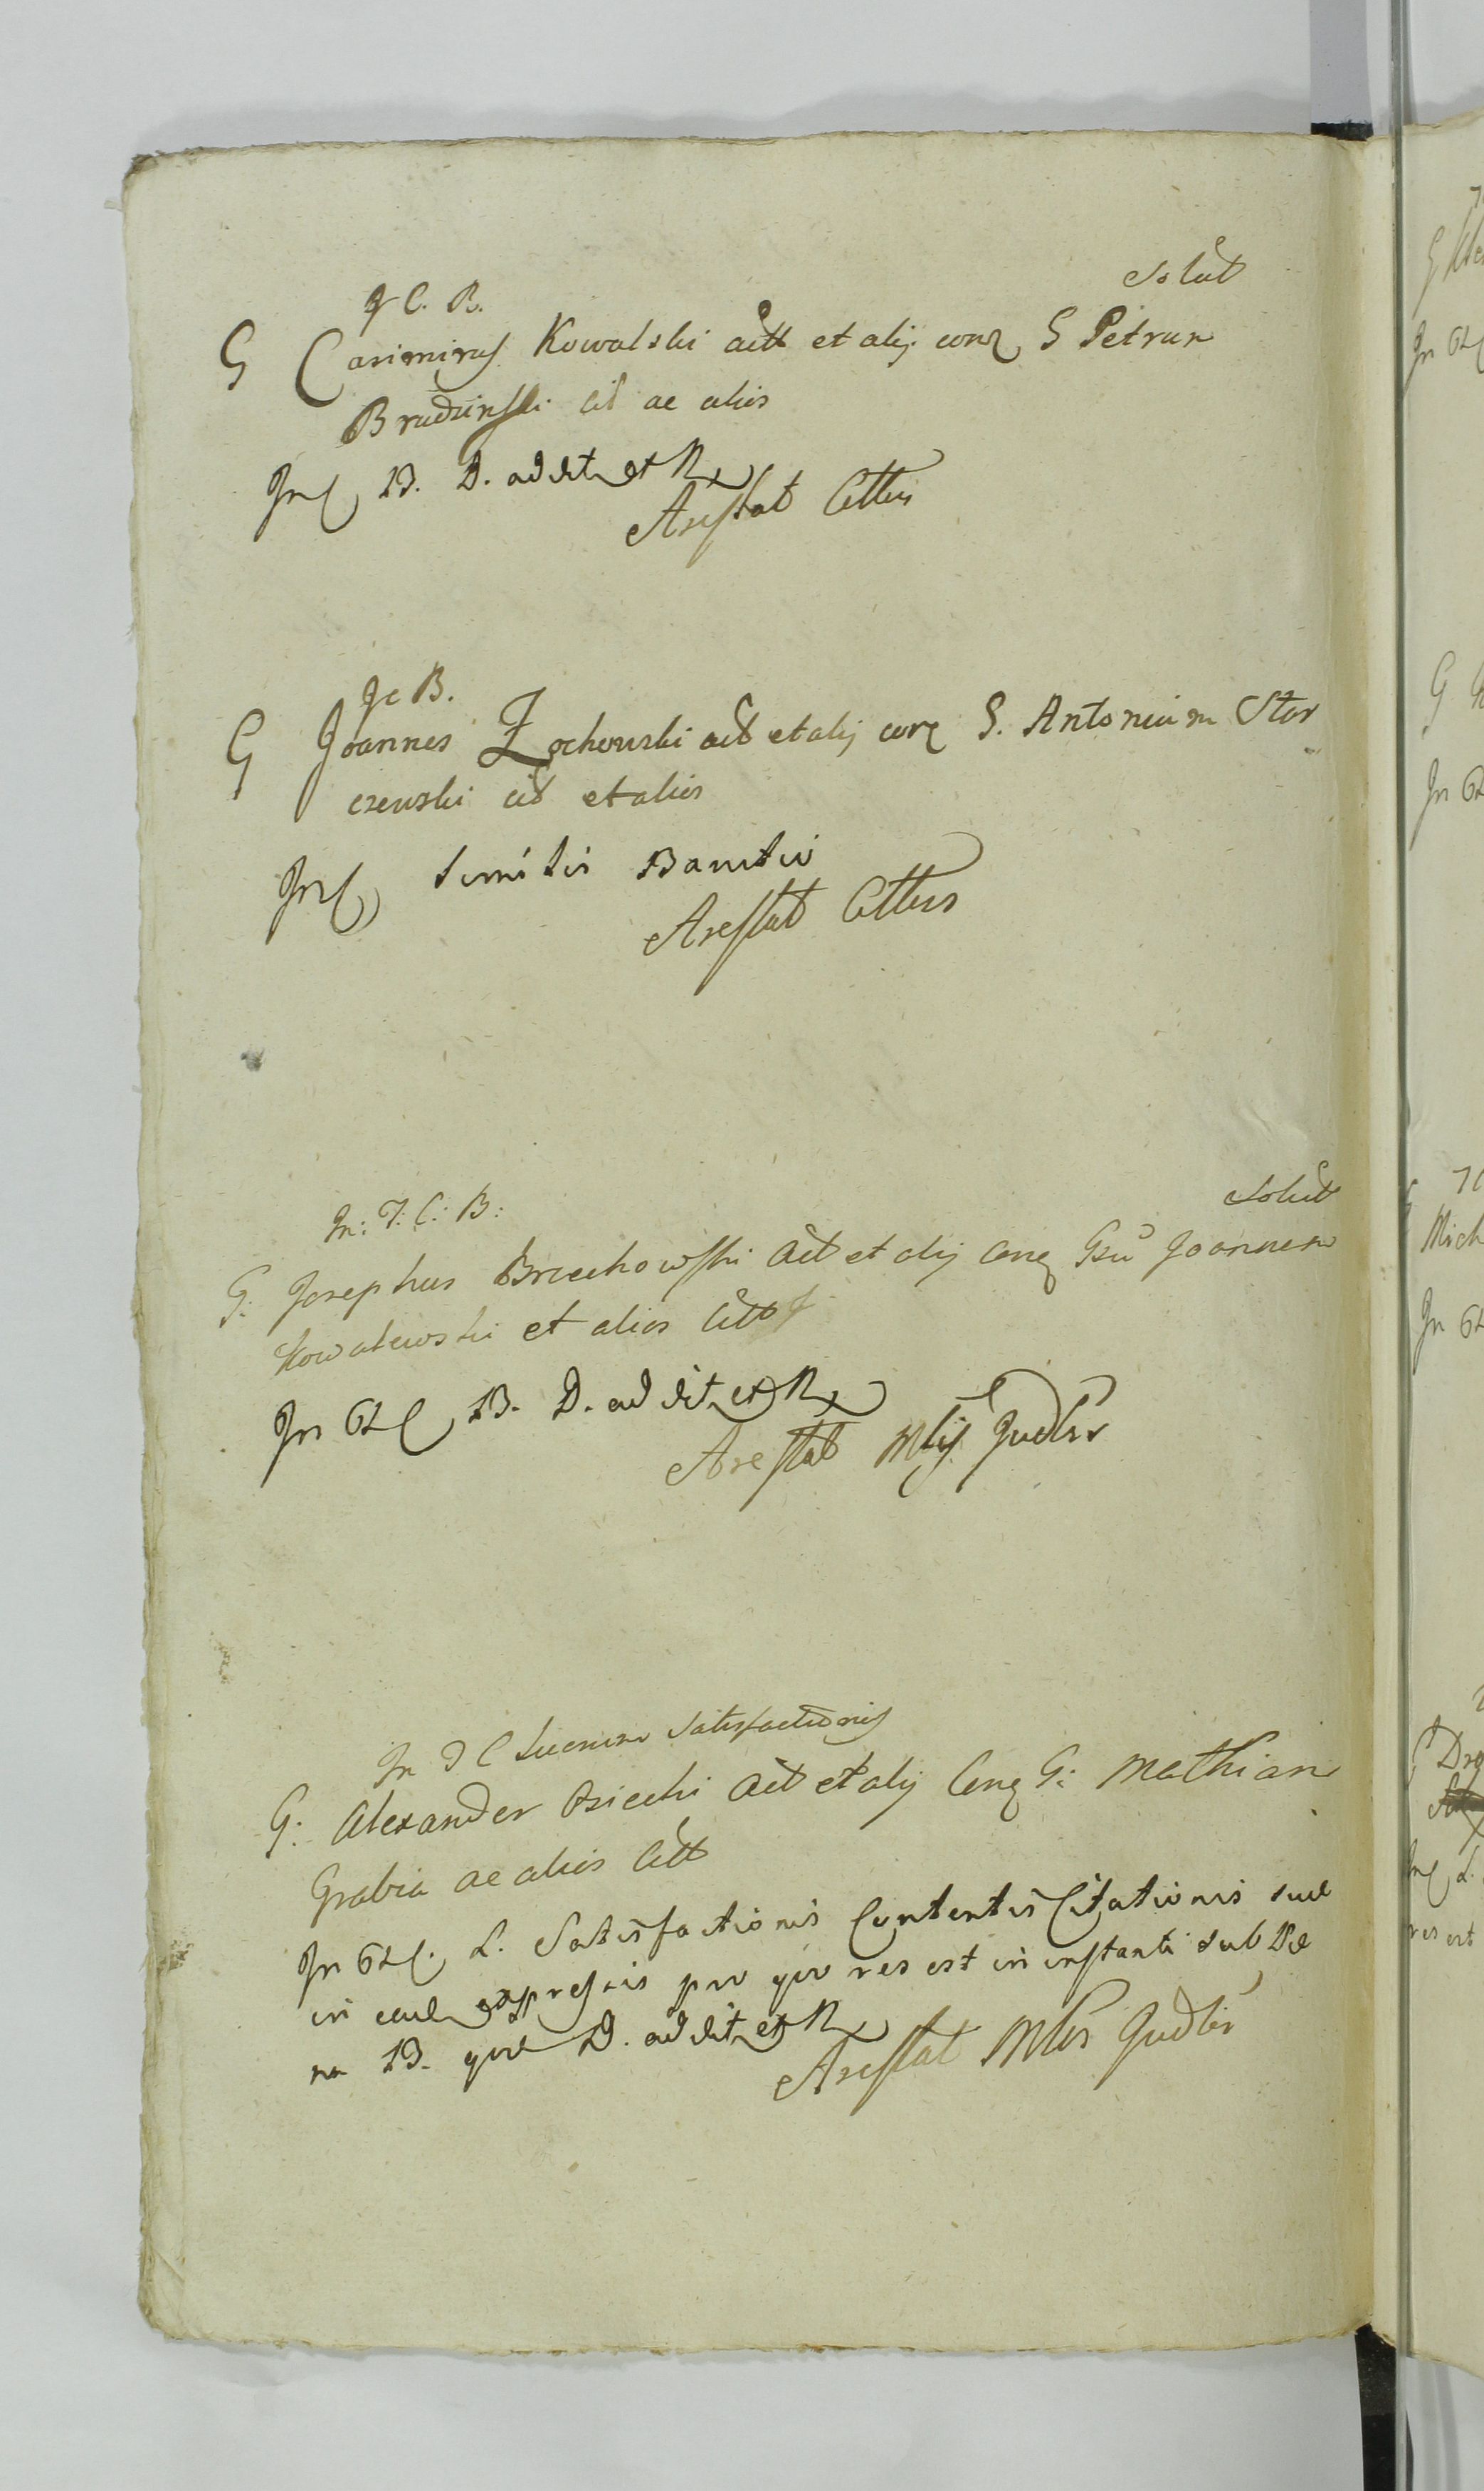 Solut
J C. B.
G Casimirus Kowalski actt et alij conq G Petrum
Brudzinski cit ac alios
In C B. D. addit et R
Arestat Cittus
J c B.
G Joannes Zochowski act et alij conq G. Antonium Stor
czewski cit et alios
In C similis Banitio
Arestat Cittus
Solut
In: T: C: B:
G: Josephus Brzechowski Act et alij Conq Gsu Joannem
Kowalewski et alios Citt
In C B. D. addit et R
Arestat Mlis Judlis
In T C Lucrum Satisfactionis
G: Alexander Osiecki Act et alij Conq G: Mathiam
Grabia ac alios Citt
In C. L. Satisfactionis Contentis Citationis suae
in eadem expressis pro quo res est in instanti sub Pae
na B. quae D. addit et R
Arestat Mlis Judlis